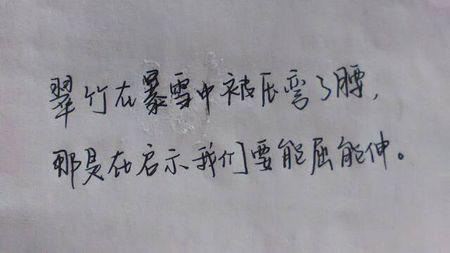 翠竹在暴雪中被压弯了腰，
那是在启示我们要能屈能伸。